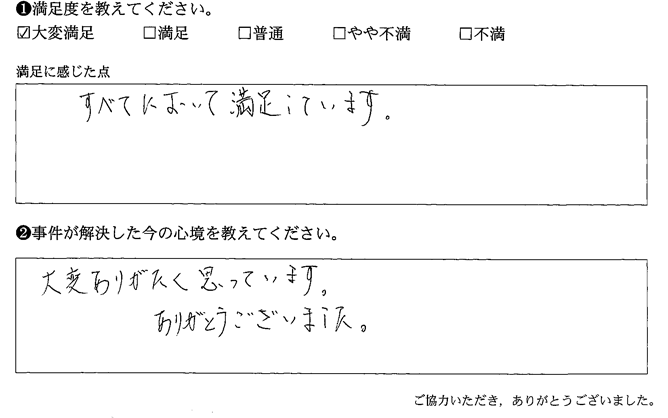 ❶満足度を教えてください。
☑大変満足 □満足 □普通 □やや不満 □不満
満足に感じた点
すべてにおいて満足しています。
❷事件が解決した今の心境を教えてください。
大変ありがたく思っています。
ありがとうございました。
ご協力いただき，ありがとうございました。